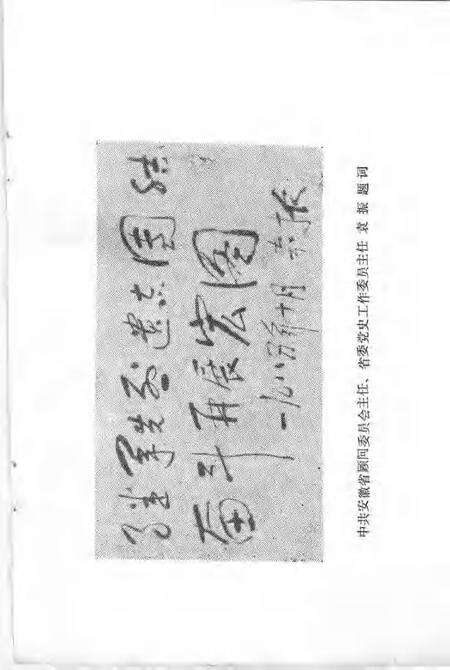 继承先烈遗志团结
奋斗再展宏图
一九八年十月 袁振
中共安徽省顾问委员会主任、省委党史工作委员主任 袁 振 题 词